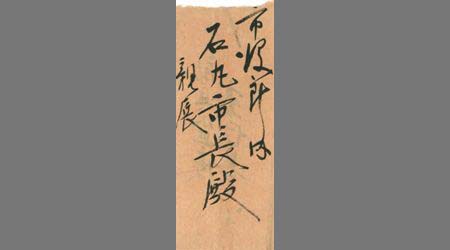 市役所内
石丸市長殿
親展